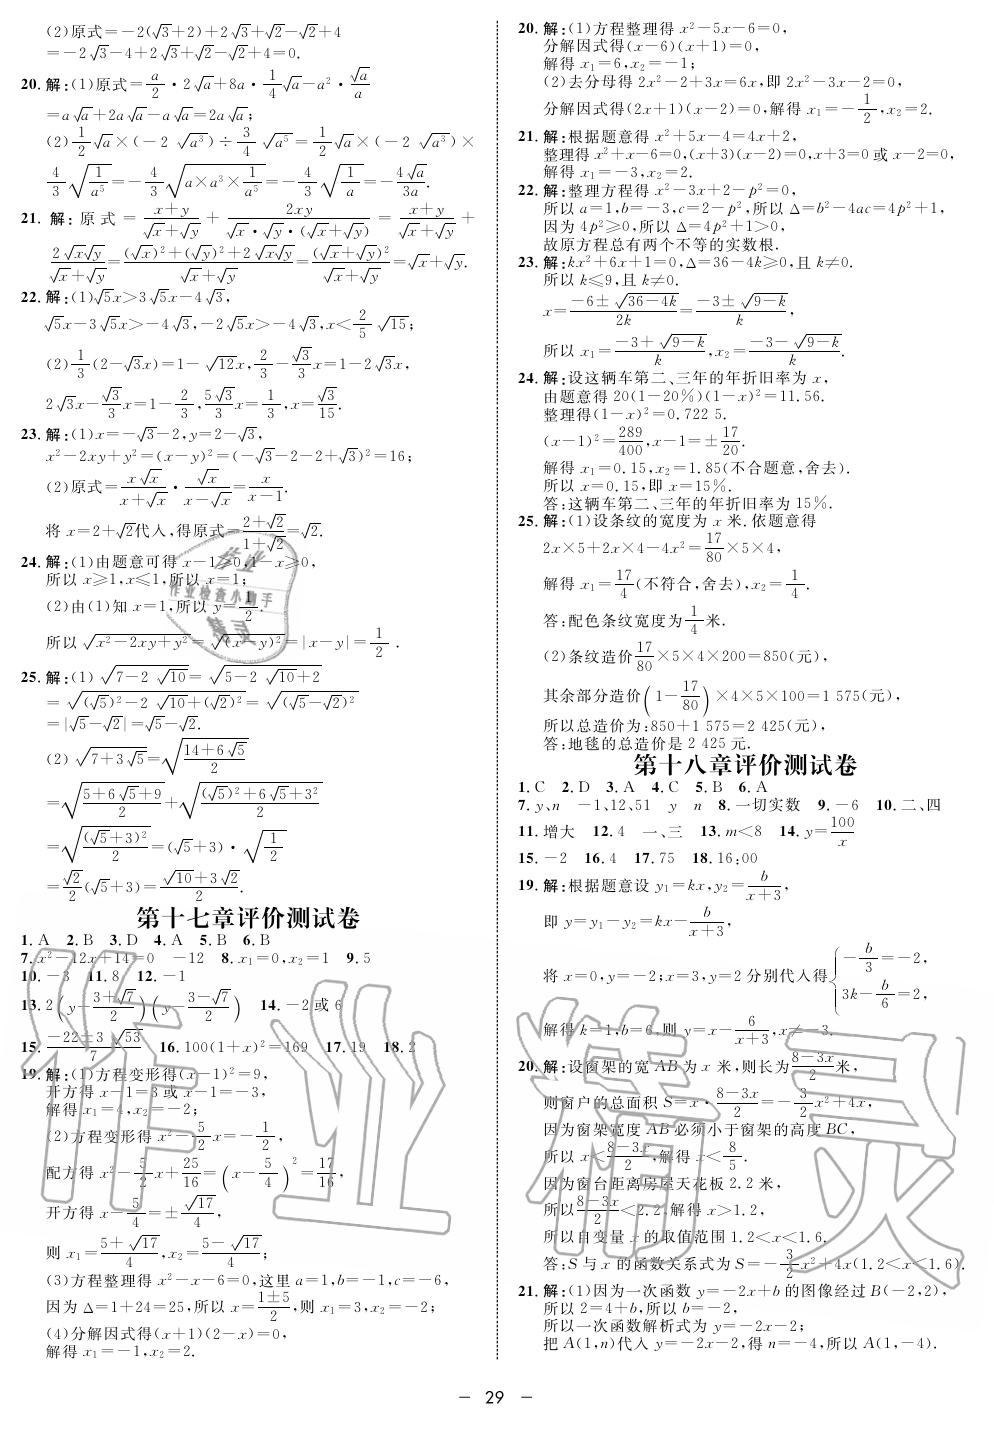 (2)原式=-2(√3+2)+2√3+√2-√2+4
=-2√3-4+2√3+√2-√2+4=0.
20. 解:(1)原式=a/2·2√a+8a·1/4√a-a²·√a/a
=a√a+2a√a-a√a=2a√a;
(2)1/2√a×(-2√a³)÷3/4√a⁵=1/2√a×(-2√a³)×
4/3√(1/a⁵)=-4/3√(a×a³×1/a⁵)=-4/3√(1/a)=-4√a/3a.
21. 解:原式=(x+y)/(√x+√y)+2xy/(√x·√y·(√x+√y))=(x+y)/(√x+√y)+
2√x√y/(√x+√y)=((√x)²+(√y)²+2√x√y)/(√x+√y)=(√x+√y)²/(√x+√y)=√x+√y.
22. 解:(1)√5x>3√5x-4√3,
√5x-3√5x>-4√3,-2√5x>-4√3,x<2/5√15;
(2)1/3(2-√3x)=1-√12x,2/3-√3/3x=1-2√3x,
2√3x-√3/3x=1-2/3,5√3/3x=1/3,x=√3/15.
23. 解:(1)x=-√3-2,y=2-√3,
x²-2xy+y²=(x-y)²=(-√3-2-2+√3)²=16;
(2)原式=x√x/(x+√x)·√x/(x-√x)=x/(x-1).
将x=2+√2代入,得原式=(2+√2)/(1+√2)=√2.
24. 解:(1)由题意可得x-1≥0,1-x≥0,
所以x≥1,x≤1,所以x=1;
(2)由(1)知x=1,所以y=1/2.
所以√(x²-2xy+y²)=√(x-y)²=|x-y|=1/2.
25. 解:(1)√(7-2√10)=√(5-2√10+2)
=√((√5)²-2√10+(√2)²)=√(√5-√2)²
=|√5-√2|=√5-√2.
(2)√(7+3√5)=√((14+6√5)/2)
=√((5+6√5+9)/2)+√(((√5)²+6√5+3²)/2)
=√((√5+3)²/2)=(√5+3)·√(1/2)
=√2/2(√5+3)=(√10+3√2)/2.
第十七章评价测试卷
1. A 2. B 3. D 4. A 5. B 6. B
7. x²-12x+14=0 -12 8. x₁=0,x₂=1 9. 5
10. -3 11. 8 12. -1
13. 2(y-(3+√7)/2)(y-(3-√7)/2) 14. -2或6
15. (-22±3√53)/7 16. 100(1+x)²=169 17. 19 18. 2
19. 解:(1)方程变形得(x-1)²=9,
开方得x-1=3或x-1=-3,
解得x₁=4,x₂=-2;
(2)方程变形得x²-5/2x=-1/2,
配方得x²-5/2x+25/16=(x-5/4)²=17/16,
开方得x-5/4=±√17/4,
则x₁=(5+√17)/4,x₂=(5-√17)/4;
(3)方程整理得x²-x-6=0,这里a=1,b=-1,c=-6,
因为Δ=1+24=25,所以x=(1±5)/2,则x₁=3,x₂=-2;
(4)分解因式得(x+1)(2-x)=0,
解得x₁=-1,x₂=2.
20. 解:(1)方程整理得x²-5x-6=0,
分解因式得(x-6)(x+1)=0,
解得x₁=6,x₂=-1;
(2)去分母得2x²-2+3x=6x,即2x²-3x-2=0,
分解因式得(2x+1)(x-2)=0,解得x₁=-1/2,x₂=2.
21. 解:根据题意得x²+5x-4=4x+2,
整理得x²+x-6=0,(x+3)(x-2)=0,x+3=0或x-2=0,
解得x₁=-3,x₂=2.
22. 解:整理方程得x²-3x+2-p²=0,
所以a=1,b=-3,c=2-p²,所以Δ=b²-4ac=4p²+1,
因为4p²≥0,所以Δ=4p²+1>0,
故原方程总有两个不等的实数根.
23. 解:kx²+6x+1=0,Δ=36-4k≥0,且k≠0.
所以k≤9,且k≠0.
x=(-6±√(36-4k))/2k=(-3±√(9-k))/k,
所以x₁=(-3+√(9-k))/k,x₂=(-3-√(9-k))/k.
24. 解:设这辆车第二、三年的年折旧率为x,
由题意得20(1-20%)(1-x)²=11.56.
整理得(1-x)²=0.722 5.
(x-1)²=289/400,x-1=±17/20.
解得x₁=0.15,x₂=1.85(不合题意,舍去).
所以x=0.15,即x=15%.
答:这辆车第二、三年的年折旧率为15%.
25. 解:(1)设条纹的宽度为x米.依题意得
2x×5+2x×4-4x²=17/80×5×4,
解得x₁=17/4(不符合,舍去),x₂=1/4.
答:配色条纹宽度为1/4米.
(2)条纹造价17/80×5×4×200=850(元),
其余部分造价(1-17/80)×4×5×100=1 575(元),
所以总造价为:850+1 575=2 425(元),
答:地毯的总造价是2 425元.
第十八章评价测试卷
1. C 2. D 3. A 4. C 5. B 6. A
7. y、n -1、12、51 y n 8. 一切实数 9. -6 10. 二、四
11. 增大 12. 4 一、三 13. m<8 14. y=100/x
15. -2 16. 4 17. 75 18. 16:00
19. 解:根据题意设y₁=kx,y₂=b/(x+3),
即y=y₁-y₂=kx-b/(x+3),
将x=0,y=-2;x=3,y=2分别代入得{-b/3=-2, 3k-b/6=2,
解得k=1,b=6,则y=x-6/(x+3),x≠-3.
20. 解:设窗架的宽AB为x米,则长为(8-3x)/2米,
则窗户的总面积S=x·(8-3x)/2=-3/2x²+4x,
因为窗架宽度AB必须小于窗架的高度BC,
所以x<(8-3x)/2,解得x<8/5.
因为窗台距离房屋天花板2.2米,
所以(8-3x)/2<2.2,解得x>1.2,
所以自变量x的取值范围1.2<x<1.6.
答:S与x的函数关系式为S=-3/2x²+4x(1.2<x<1.6).
21. 解:(1)因为一次函数y=-2x+b的图像经过B(-2,2),
所以2=4+b,所以b=-2,
所以一次函数解析式为y=-2x-2;
把A(1,n)代入y=-2x-2,得n=-4,所以A(1,-4).
— 29 —
作业
作业检查小助手
精灵
作业精灵